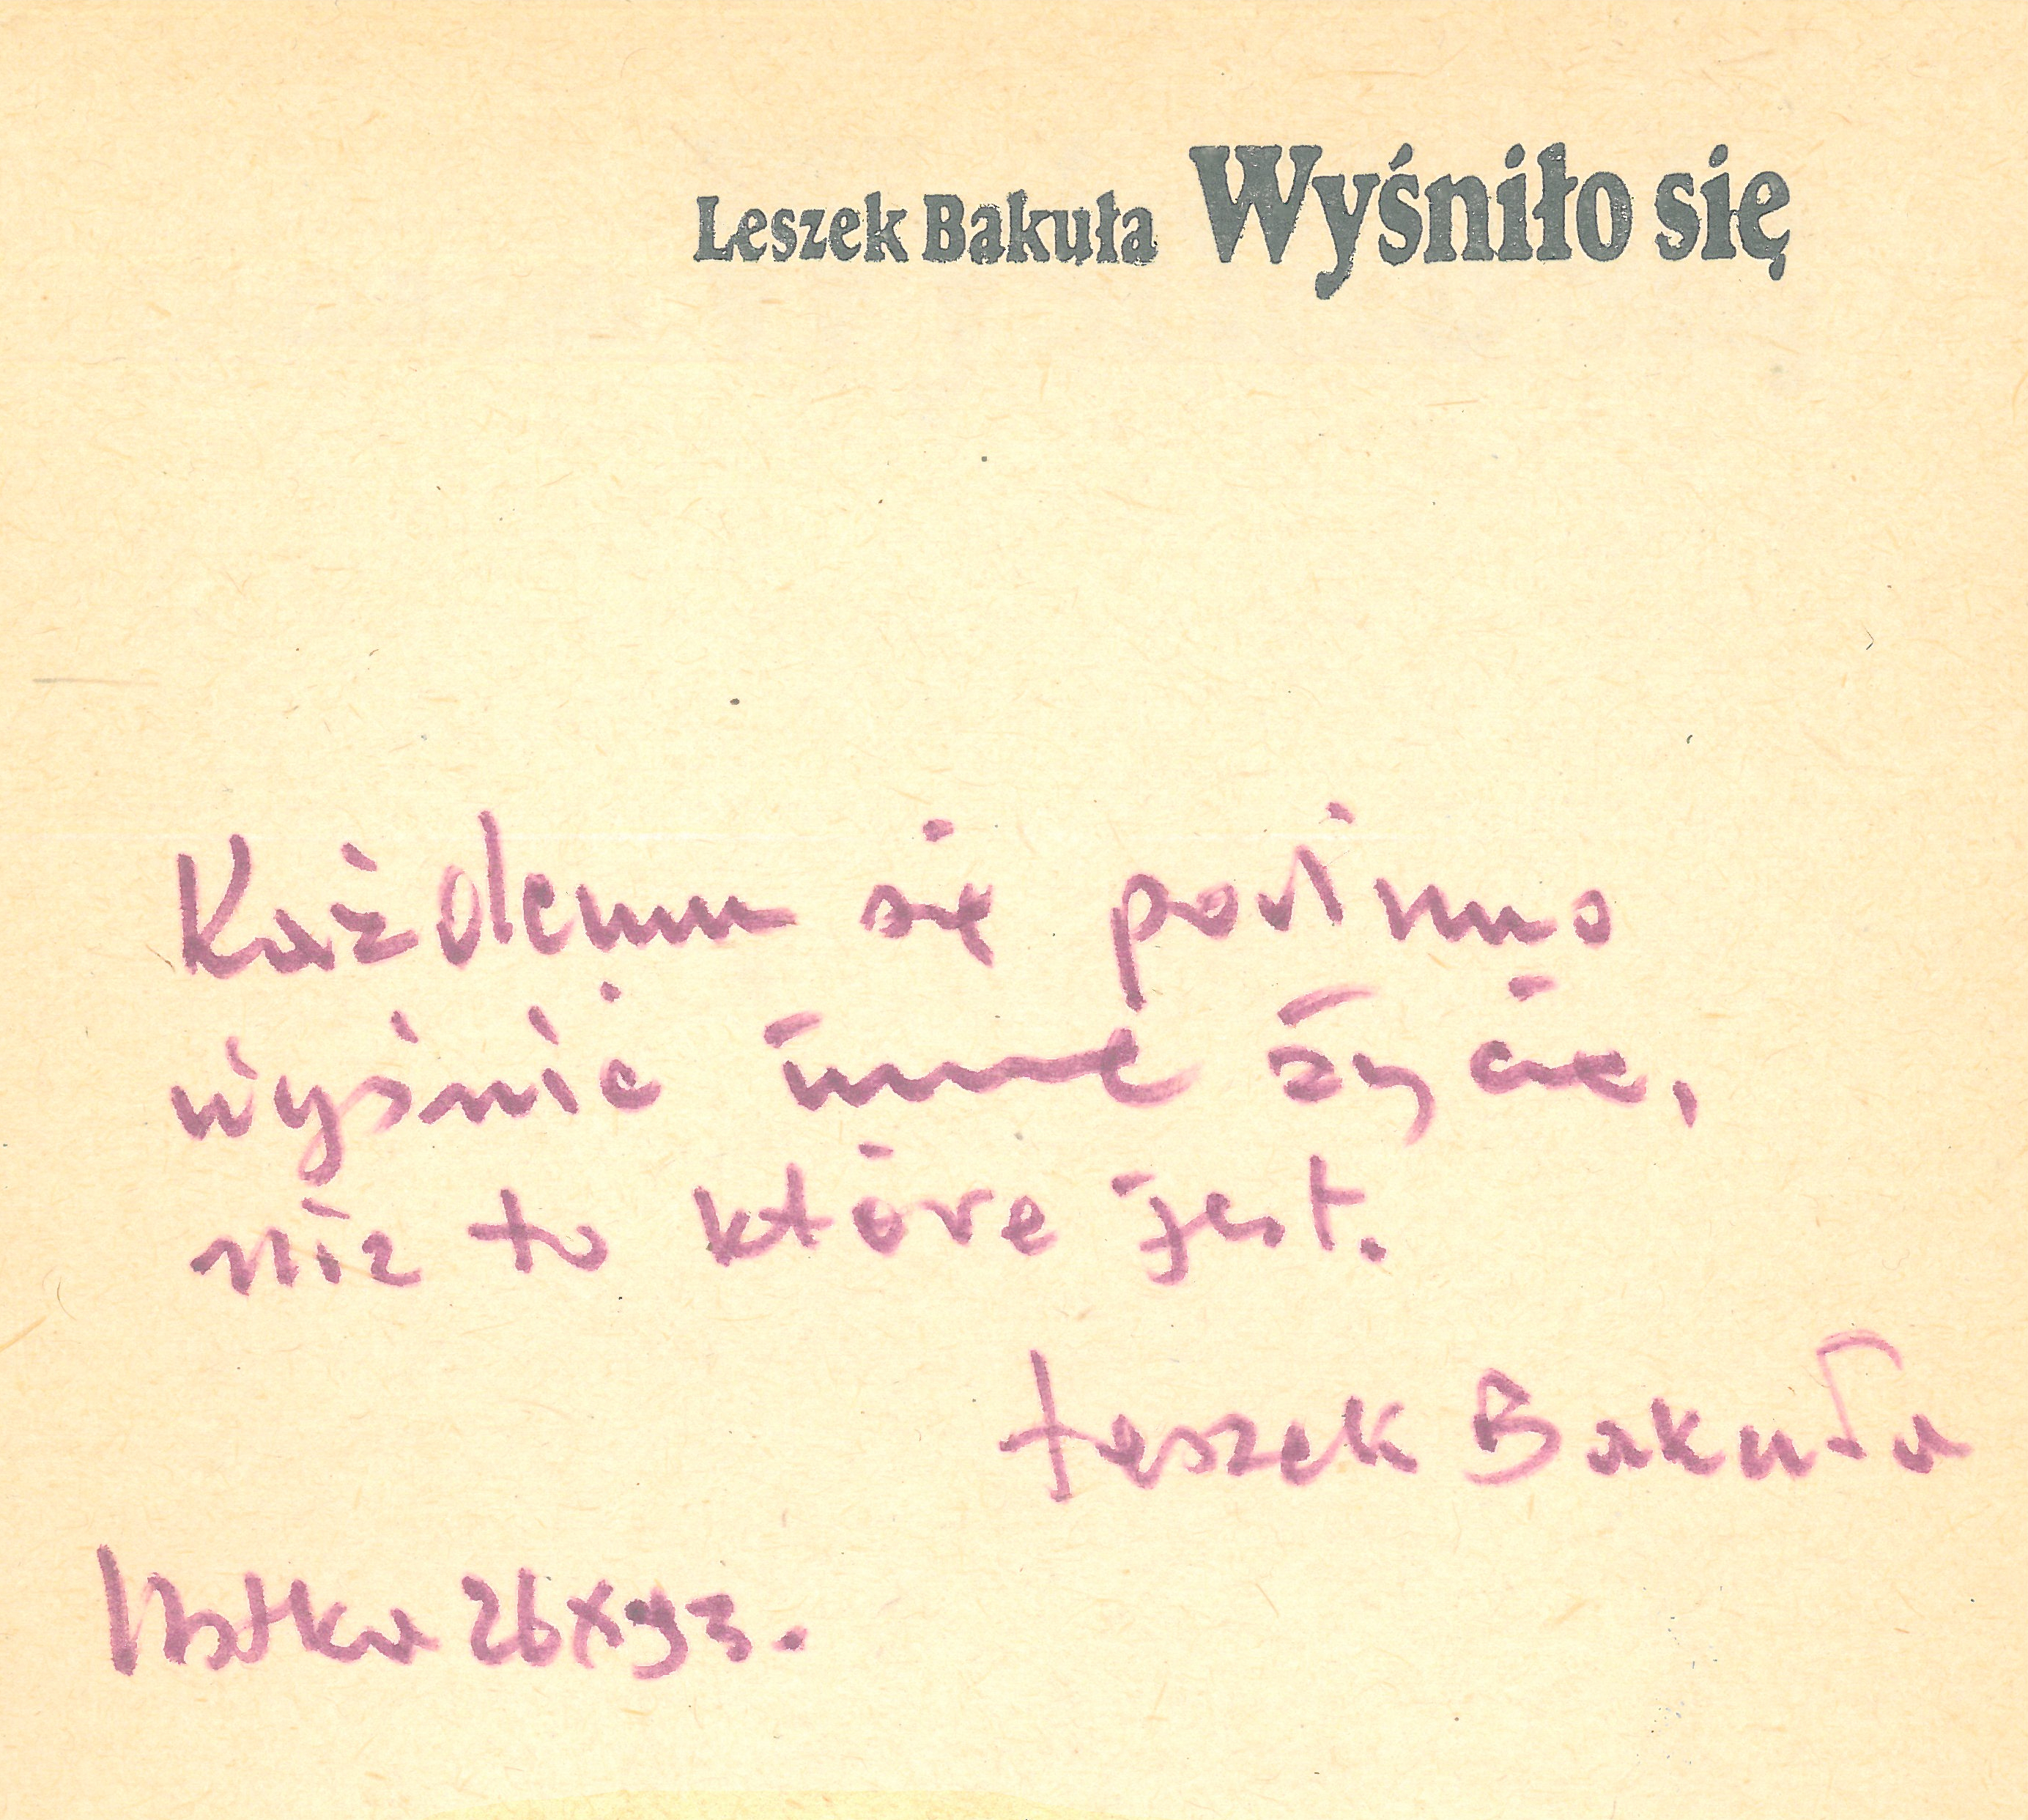 Leszek Bakuła Wyśniło się
Każdemu się powinno
wyśnić inne życie,
niż to które jest.
Leszek Bakuła
Ustka 26 X 93.